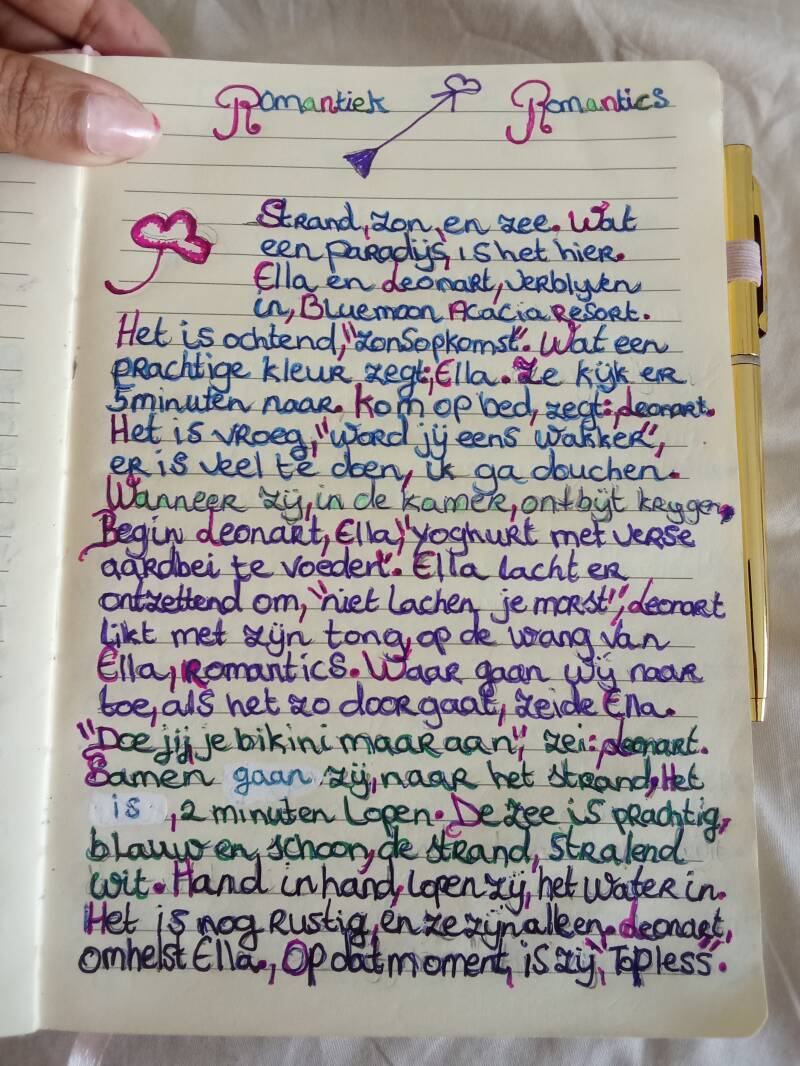 Romantiek Romantics
Strand, zon, en zee. Wat
een paradijs, is het hier.
Ella en deonart, verblyven
in, Bluemoon Acacia Resort.
Het is ochtend, "zonsopkomst". Wat een
prachtige kleur zegt:, Ella. Ze kijk er
5minuten naar. Kom op bed, zegt:, deonart.
Het is vroeg, "word jij eens wakker",
er is veel te doen, ik ga douchen.
Wanneer zij, in de kamer, ontbijt krygen,
Begin deonart, Ella, "yoghurt met verse
aardbei te voeden". Ella lacht er
ontzettend om, "niet lachen je morst", deonart
likt met zijn tong, op de wang van
Ella, Romantics. Waar gaan wij naar
toe, als het zo door gaat, zeide Ella.
"Doe jij, je bikini maar aan", zei: deonart.
Samen gaan zij, naar het strand, Het
is, 2 minuten lopen. De zee is prachtig,
blauw en, schoon, de strand, stralend
wit. Hand in hand, lopen zij, het water in.
Het is nog rustig, en ze zijn alleen. deonart,
omhelst Ella., Op dat moment, is zij, "Topless".